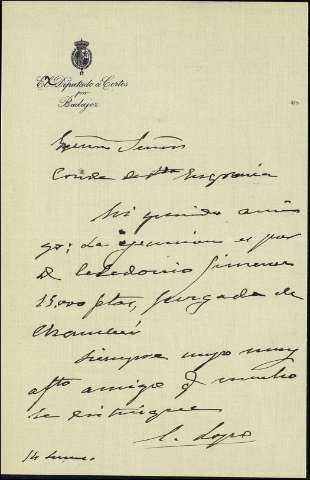 El Diputado a Cortes
por
Badajoz
Exmo Señor
Conde de Sta Engracia
Mi querido ami
go; La ejecucion es por
D. Celedonio Gimenez
15.000 ptas, Juzgado de
Chamberi
Siempre suyo muy
afto amigo q mucho
se distingue
L. Lopo
14